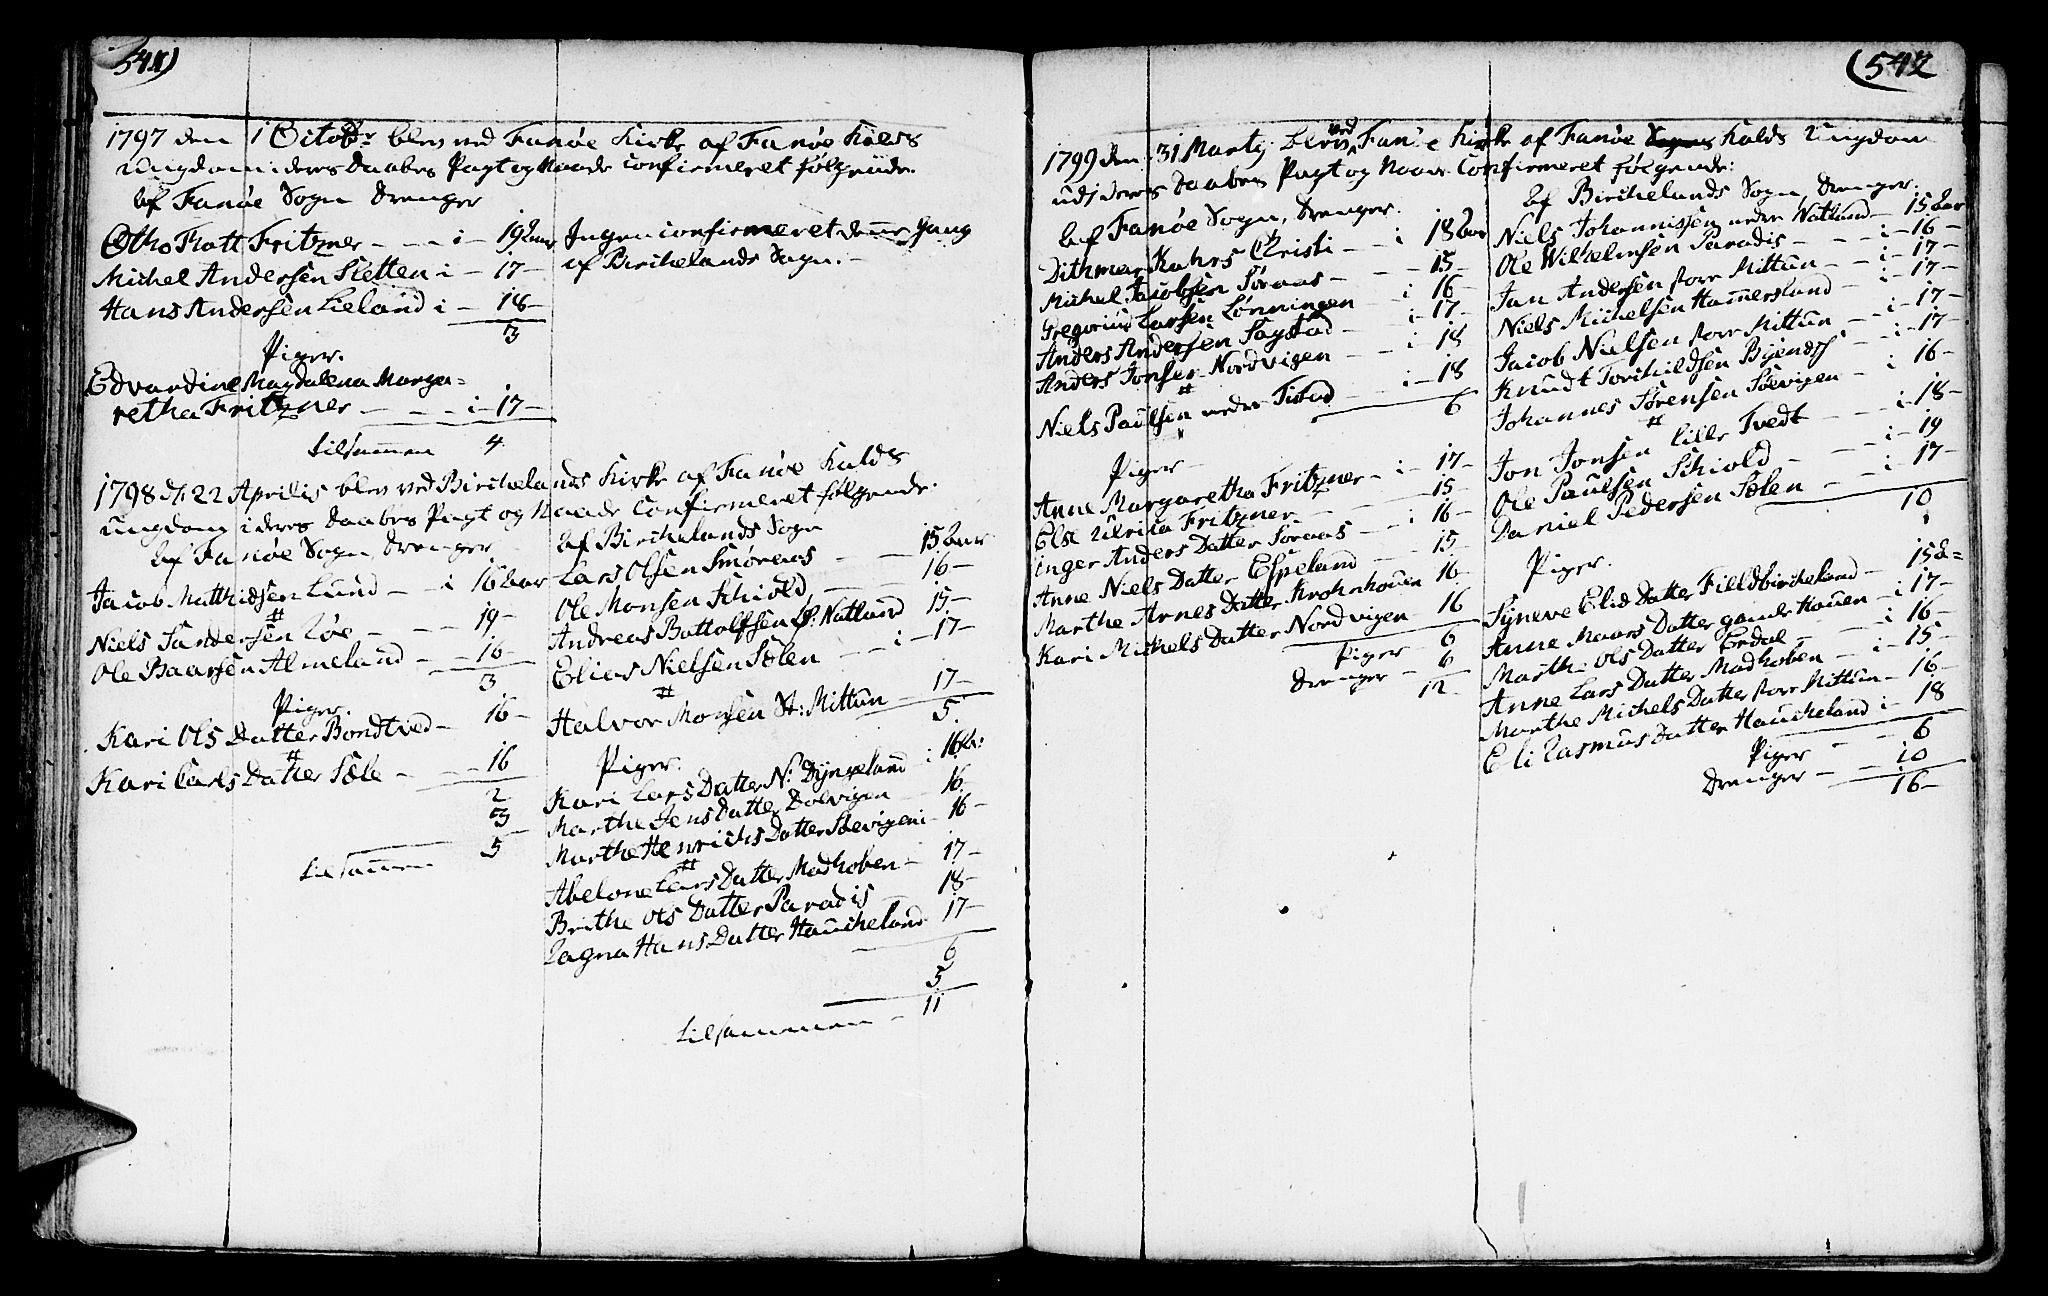 541)
1797 den 1 Octobr blev ved Fanøe Kirke af Fanøe Kalds
Ungdom i deres Daabes Pagt og Naade confirmeret følgende.
Af Fanøe Sogn Drenger
Otho Thott Fritzner - - - i - 19 Aar
Michel Andersen Sletten i - 17 -
Hans Andersen Lieland i - 18 -
3
Piger.
Edvardine Magdalena Marga=
retha Fritzner - - - i - 17 -
tilsammen 4
Ingen confirmeret denne Gang
af Birchelands Sogn. -
1798 d. 22 Aprilis blev ved Birchelands Kirke af Fanøe Kalds
ungdom i deres Daabes Pagt og Naade Confirmeret følgende.
Af Fanøe Sogn Drenger
Jacob Matthidsen Lund - - i 16 Aar
Niels Sandersen Røe - - - 19 -
Ole Baarsen Almeland - - 16 -
3
Piger.
Kari Ols Datter Bondtved - 16 -
Kari Carls Datter Sæle - - - 16
2
3
tilsammen 5
Af Birchelands Sogn
Lars Olsen Smøraas - - 15 Aar
Ole Monsen Schiold, - - 16 -
Andreas Battolfsen Ø: Natland 15 -
Elias Nielsen Sælen - - i - 17 -
Halvor Monsen St: Mittun - 17 -
5.
Piger.
Kari Lars Datter N: Dyngeland i 16 A:
Marthe Jens Datter Dolvigen 16
Marthe Henrichs Datter Søevigen i - 16 -
Abelone Lars Datter Madhoben - 17 -
Brithe Ols Datter Paradis - 18 -
Ragna Hans Datter Hauckeland 17 -
6
5
tilsammen - 11
(542
1799 den 31 Martij blev ved Fanøe Kirke af Fanøe Sogns Kalds Ungdom
udj deres Daabes Pagt og Naade Confirmeret følgende:
Af Fanøe Sogn, Drenger.
Dithmar Kahrs Christi - - i 18 Aar
Michel Jacobsen Søraas - - - - 15 -
Gregorius Larsen Lønningen - - i 16 -
Anders Andersen Sagstad - - i - 17 -
Anders Jonsen Nordvigen - - i 18
Niels Paulsen nedre Titlestad - - i - 18
6
Piger -
Anne Margaretha Fritzner - i - 17 -
Else Ulrica Fritzner - - - 15 -
Inger Anders Datter Søraas - - i 16 -
Anne Niels Datter Espeland - - - 15 -
Marthe Arnes Datter Krohnhouen 16 -
Kari Michels Datter Nordvigen - 16
Piger - 6
Drenger - 6
12 -
Af Birchelands Sogn, Drenger.
Niels Johannissen nedre Natland - 15 Aar
Ole Wilhelmsen Paradis - - - i - 16 -
Jan Andersen store Mittun - - i - 17 -
Niels Michelsen Hammersland - i - 17 -
Jacob Nielsen store Mittun - - i - 17 -
Knudt Torchildsen - - i - 17
Johannes Sørensen Søevigen - i 16 -
Jon Jonsen lille Tvedt - - - i - 18 -
Ole Paulsen Schiold - - - i - 19
Daniel Pedersen Sælen - - - i - 17 -
10
Piger.
Syneve Elid Datter Fielldbircheland - 15 A=
Anne Maars Datter gamle houen - i 17 -
Marthe Ols Datter Erdal - - i 16 -
Anne Lars Datter Madhoben - i - 15 -
Marthe Michels Datter store Mittun - 16 -
Eli Rasmus Datter Hauckeland i - 18
Piger - - 6
Drenger - - 10
16 -